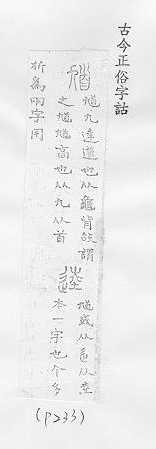 古今正俗字詁
馗
馗九達道也似龜背故謂
之馗馗高也从九从首
逵
馗或从辵从坴
本一字也今多
析為兩字用
(P233)